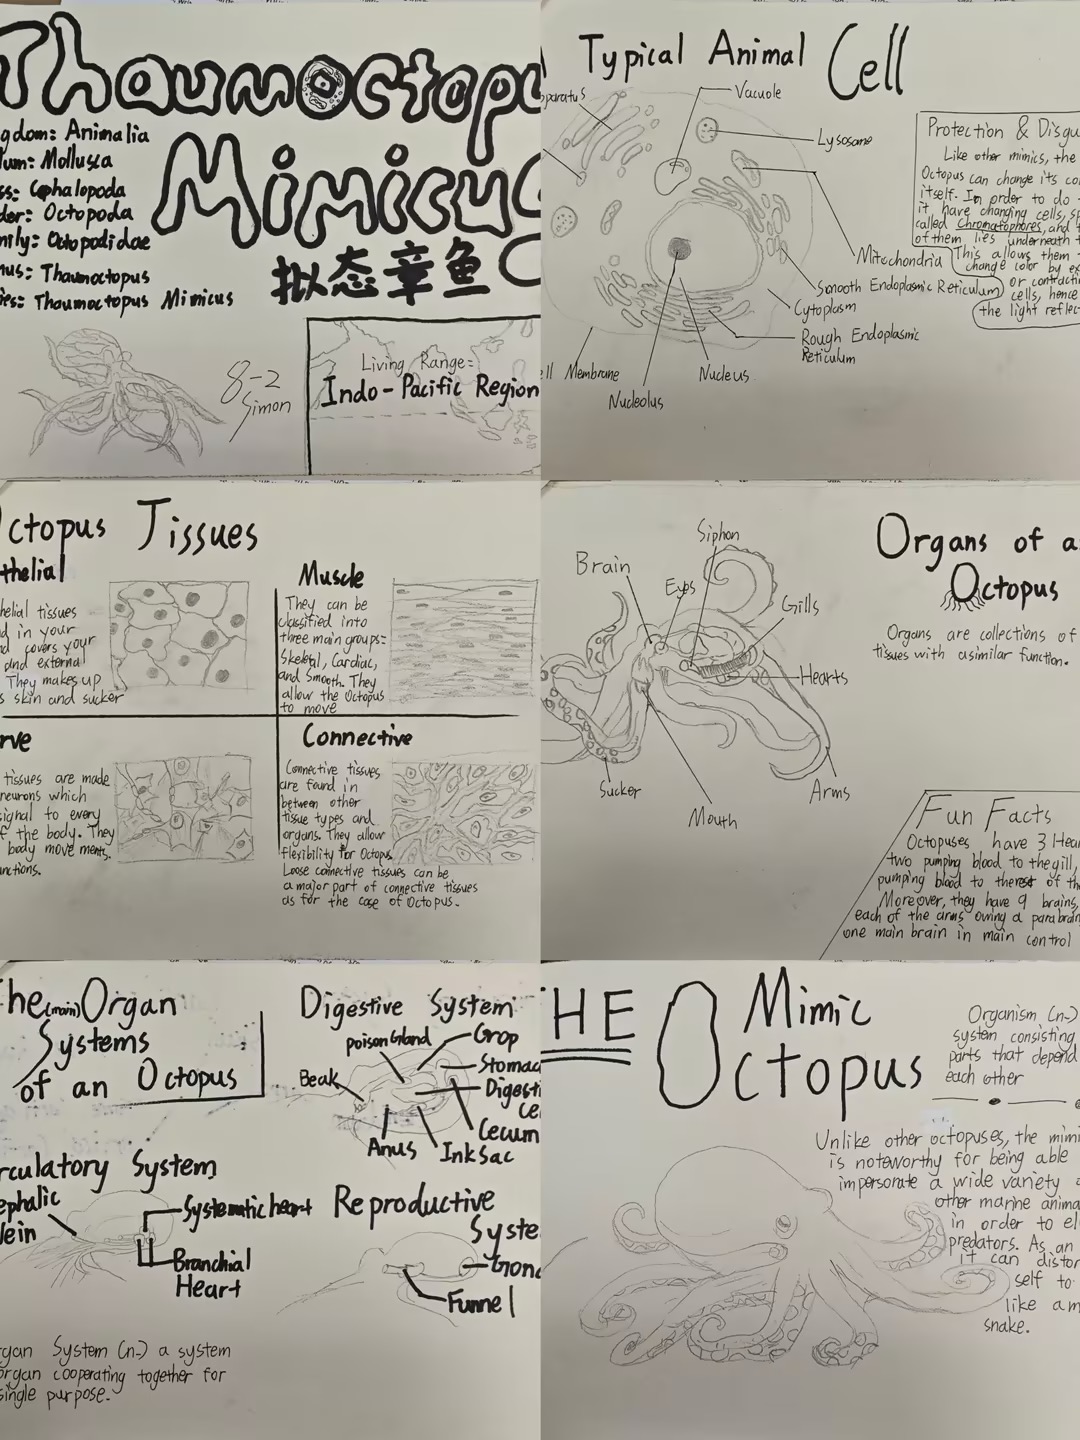 Thaumoctopu
Mimicus
gdom: Animalia
lum: Mollusca
ss: Cephalopoda
der: Octopoda
mily: Octopodidae
nus: Thaumoctopus
ies: Thaumoctopus Mimicus
拟态章鱼
8-2
Simon
Living Range:
Indo-Pacific Region
Typical Animal Cell
paratus
Vacuole
Lysosome
Mitochondria
Smooth Endoplasmic Reticulum
Cytoplasm
Rough Endoplasmic
Reticulum
Nucleus
ell Membrane
Nucleolus
Protection & Disgu
Like other mimics, the
Octopus can change its co
itself. In order to do
it have changing cells, sp
called Chromatophores, and
of them lies underneath
This allows them
change color by ex
or contracti
cells, hence
the light reflec
ctopus Tissues
thelial
helial tissues
d in your
d covers your
and external
They makes up
s skin and sucker
Muscle
They can be
classified into
three main groups:
Skeletal, Cardiac,
and Smooth. They
allow the Octopus
to move
rve
tissues are made
neurons which
signal to every
f the body. They
body movements.
unctions.
Connective
Connective tissues
are found in
between other
tissue types and
organs. They allow
flexibility for Octopus
Loose connective tissues can be
a major part of connective tissues
as for the case of Octopus.
Organs of a
Octopus
Organs are collections of
tissues with a similar function.
Siphon
Brain
Eyes
Gills
Hearts
Sucker
Arms
Mouth
Fun Facts
Octopuses have 3 Hear
two pumping blood to the gill,
pumping blood to the rest of th
Moreover, they have 9 brains,
each of the arms owing a parabrain
one main brain in main control
he (main) Organ
Systems
of an Octopus
Digestive System
poison Gland
Crop
Stomac
Beak
Digesti
Ce
Cecum
Anus
Ink Sac
rculatory System
ephalic
Vein
Systematic heart
Branchial
Heart
Reproductive
Syste
Gona
Funnel
rgan System (n.) a system
organ cooperating together for
single purpose.
HE Mimic
Octopus
Organism (n.)
system consisting
parts that depend
each other
Unlike other octopuses, the mimi
is noteworthy for being able
impersonate a wide variety
other marine anima
in order to el
predators. As an
it can distor
self to
like a m
snake.